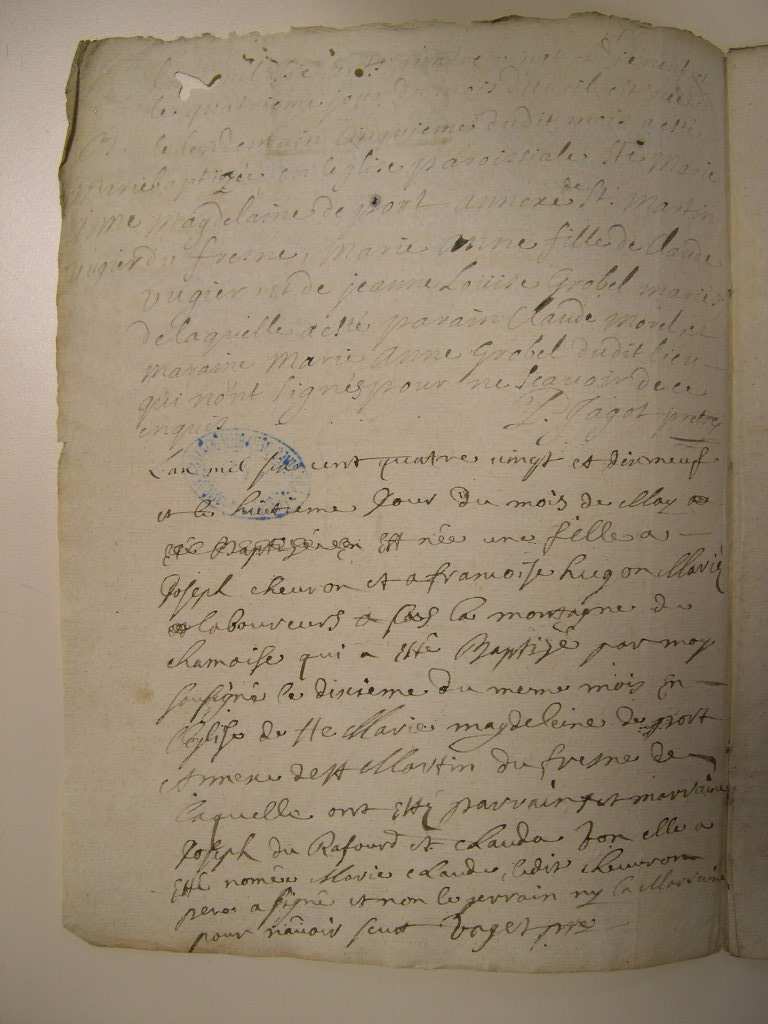 le quatrieme jour du mois d'avril est née et
le lendemain cinquieme dudit mois a esté
baptizée en leglise paroissiale Ste Marie
magdelaine de port annexe de St. Martin
du fresne, Marie Anne fille de Claude
vugier et de jeanne Louise Grobel mariés
de laquelle a esté parain Claude Morel et
maraine Marie Anne Grobel dudit lieu
qui n'ont signés pour ne scavoir de ce
enquis J. Jagot pretre
L'an mil six cent quatre vingt et dixneuf
et le huitieme Jour du mois de May
est née une fille a
Joseph cheuron et a francoise hugon Mariés
laboureurs la montagne de
chamoise qui a esté Baptizé par moy
sousigné le dixieme du meme mois En
l'eglise de Ste Marie magdeleine de port
Annexe de St Martin du fresne de
laquelle ont esté parrain et marraine
Joseph du Rafourd et Clauda elle a
esté nomée Marie claude ledit cheuron
pere a signé et non le parrain ny la Marraine
pour n'avoir sceu pre